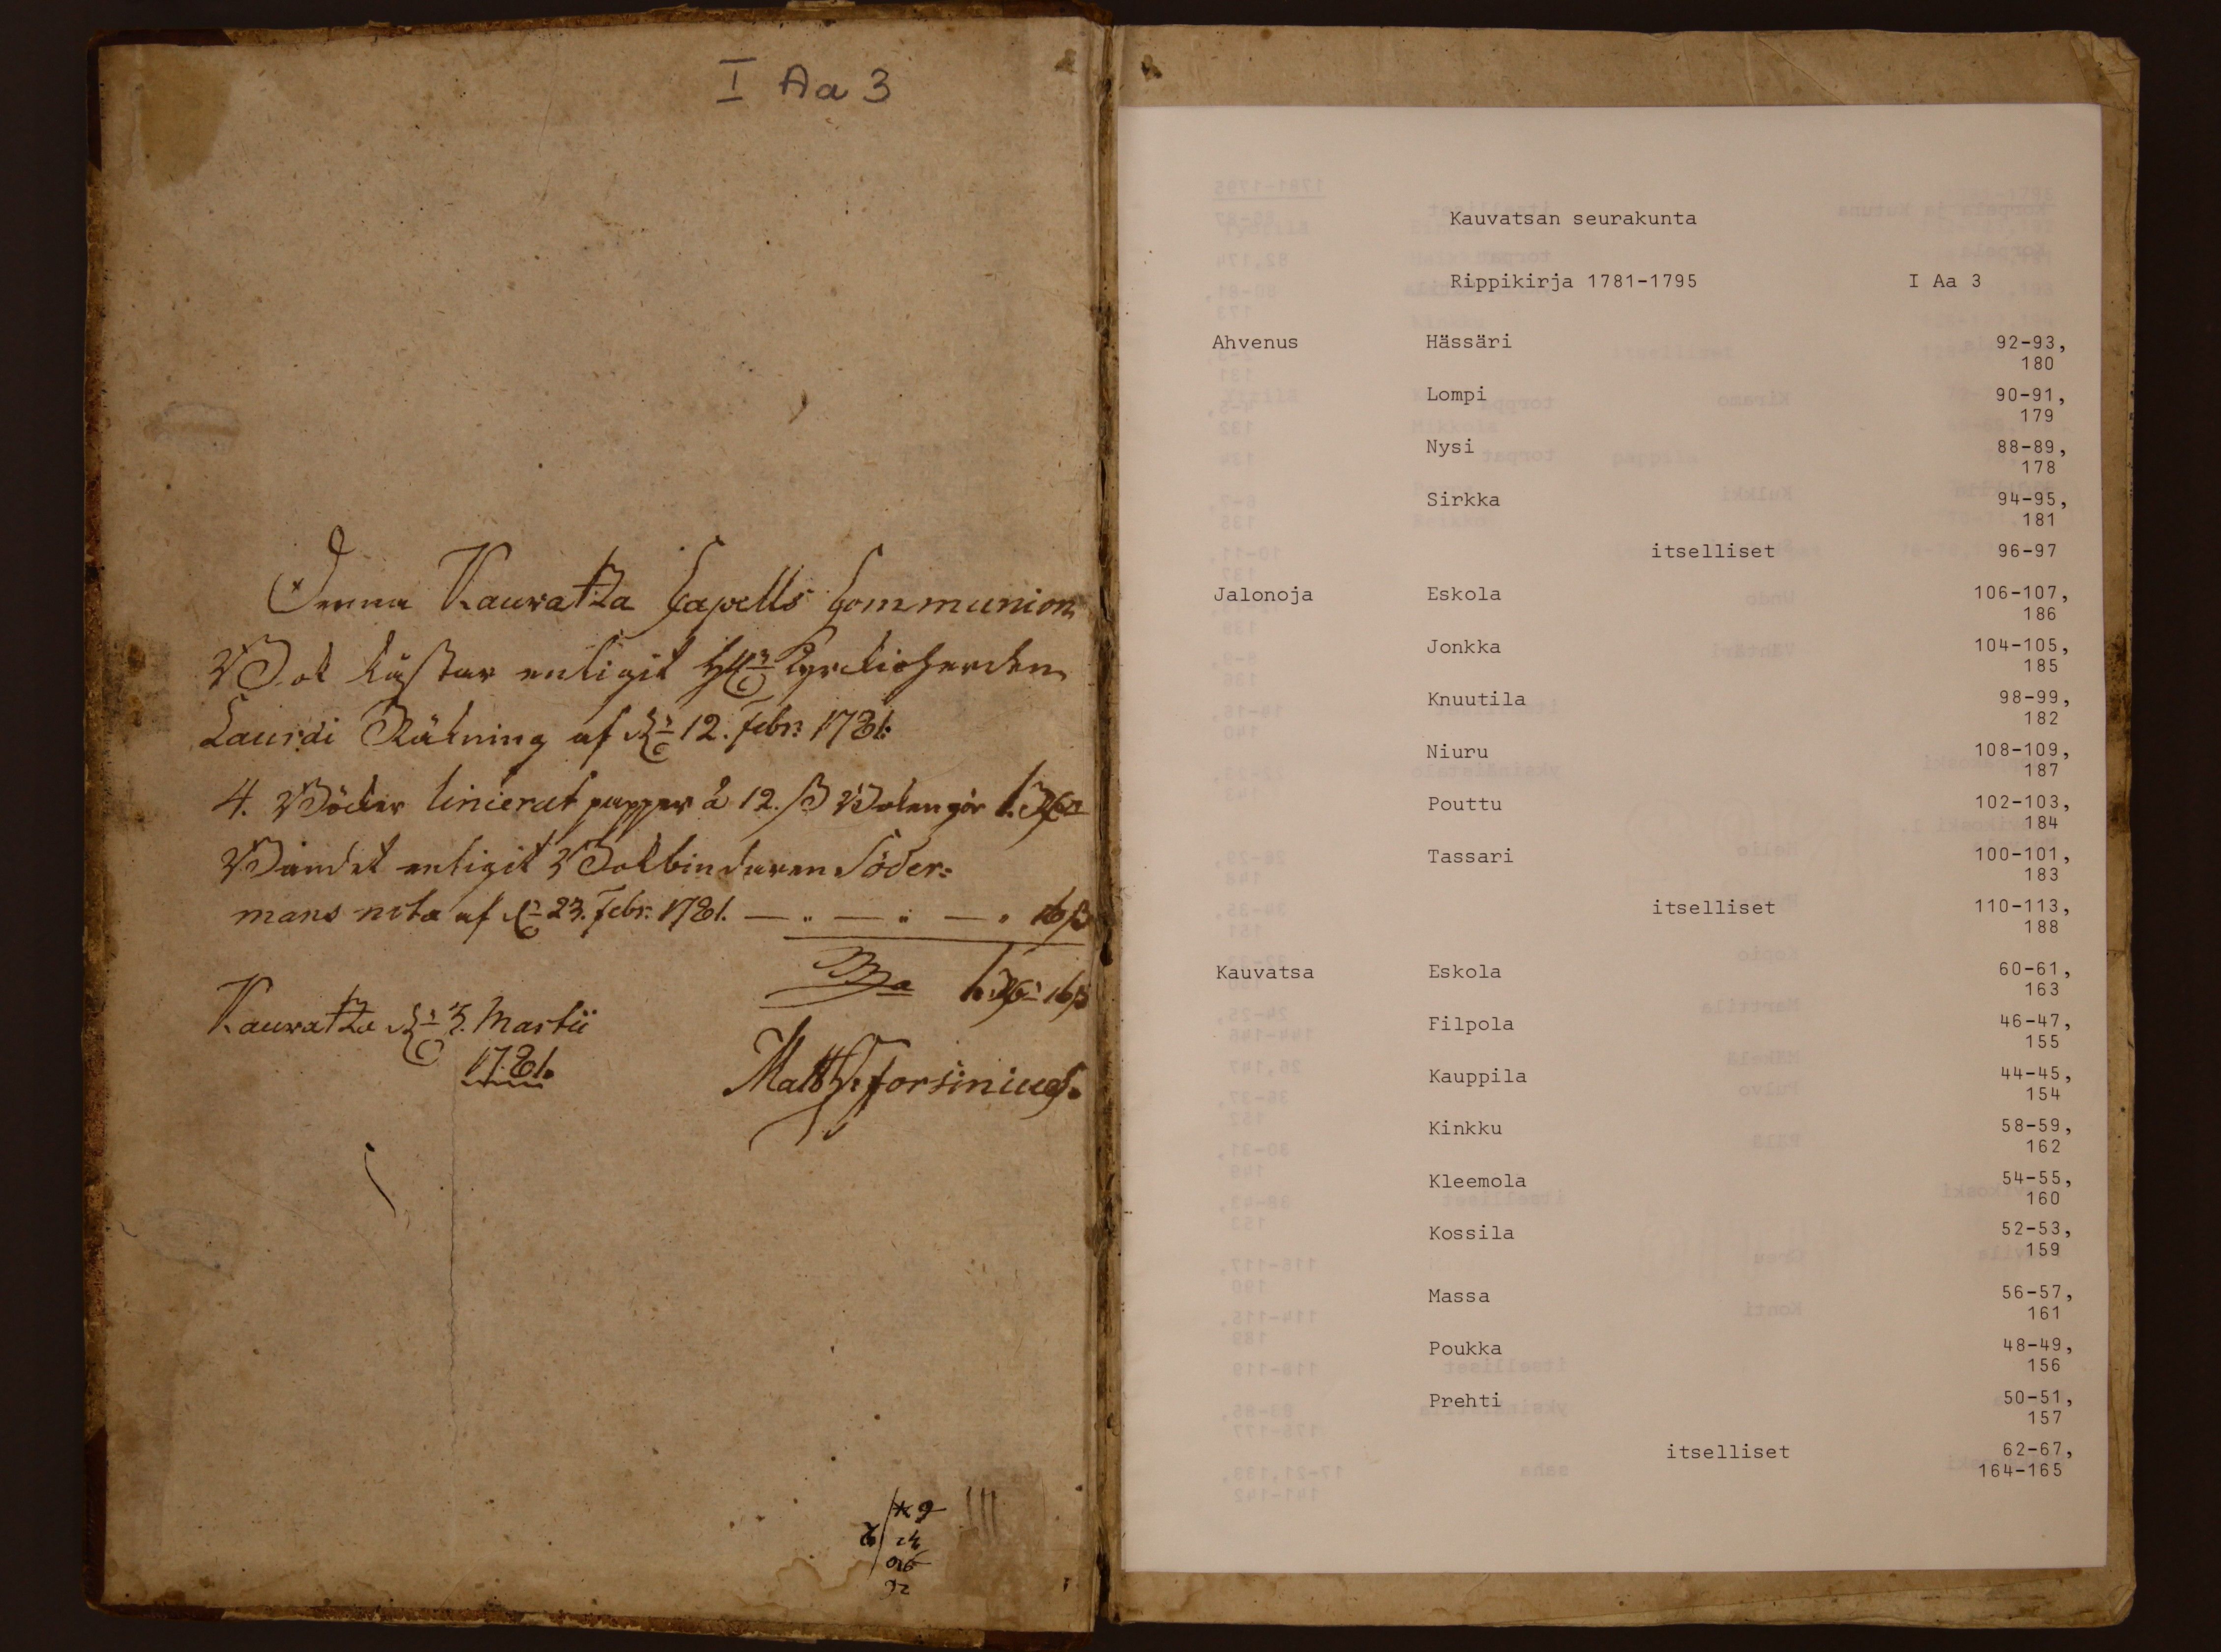 I Aa 3
Denna Kauvatza Capells Communion
Bok kåstar enligit H:r Kyrckioherden
Lauræi Räkning af d: 12. Febr: 1781.
4. Böcker linierat papper à 12. ß Boken gör 1. Rd
Bandet enligit Bokbindaren Söder=
mans nota af d: 23. Febr: 1781. — " — " — " 16 ß
S:a 1 Rd 16 ß
Kauvatza d: 3. Martii
1781.
Matth: Forsinius.
Kauvatsan seurakunta
Rippikirja 1781-1795 I Aa 3
Ahvenus Hässäri 92-93,
180
Lompi 90-91,
179
Nysi 88-89,
178
Sirkka 94-95,
181
itselliset 96-97
Jalonoja Eskola 106-107,
186
Jonkka 104-105,
185
Knuutila 98-99,
182
Niuru 108-109,
187
Pouttu 102-103,
184
Tassari 100-101,
183
itselliset 110-113,
188
Kauvatsa Eskola 60-61,
163
Filpola 46-47,
155
Kauppila 44-45,
154
Kinkku 58-59,
162
Kleemola 54-55,
160
Kossila 52-53,
159
Massa 56-57,
161
Poukka 48-49,
156
Prehti 50-51,
157
itselliset 62-67,
164-165